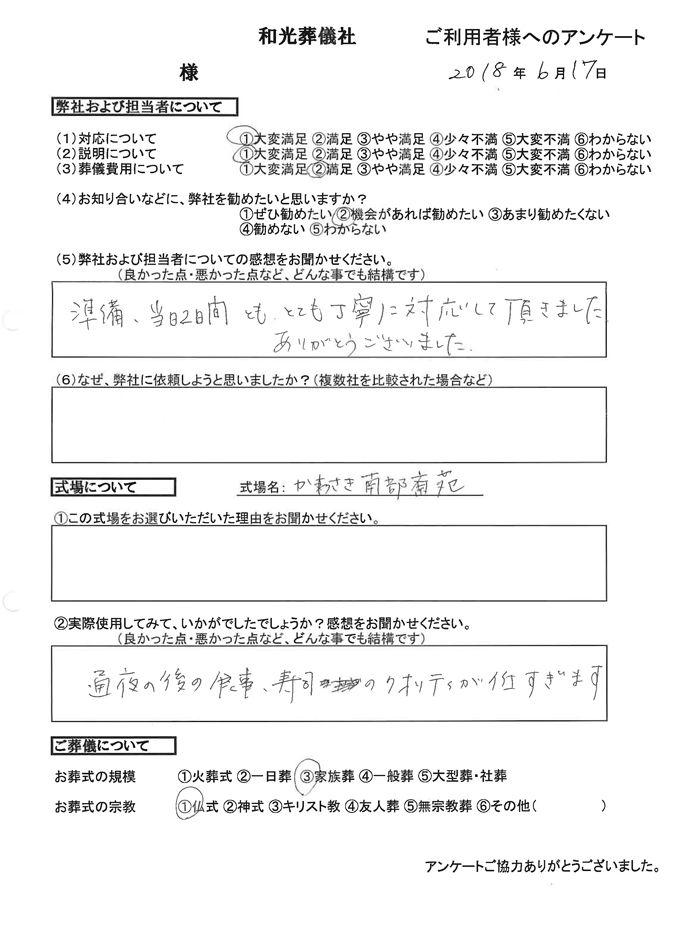 和光葬儀社 ご利用者様へのアンケート
様 2018年6月17日
弊社および担当者について
(1)対応について ①大変満足 ②満足 ③やや満足 ④少々不満 ⑤大変不満 ⑥わからない
(2)説明について ①大変満足 ②満足 ③やや満足 ④少々不満 ⑤大変不満 ⑥わからない
(3)葬儀費用について ①大変満足 ②満足 ③やや満足 ④少々不満 ⑤大変不満 ⑥わからない
(4)お知り合いなどに、弊社を勧めたいと思いますか?
①ぜひ勧めたい ②機会があれば勧めたい ③あまり勧めたくない
④勧めない ⑤わからない
(5)弊社および担当者についての感想をお聞かせください。
(良かった点・悪かった点など、どんな事でも結構です)
準備、当日2日間 とも、とても丁寧に対応して頂きました
ありがとうございました.
(6)なぜ、弊社に依頼しようと思いましたか?(複数社を比較された場合など)
式場について 式場名: かわさき南部斎苑
①この式場をお選びいただいた理由をお聞かせください。
②実際使用してみて、いかがでしたでしょうか?感想をお聞かせください。
(良かった点・悪かった点など、どんな事でも結構です)
通夜の後の食事、寿司のクオリティが低すぎます
ご葬儀について
お葬式の規模 ①火葬式 ②一日葬 ③家族葬 ④一般葬 ⑤大型葬・社葬
お葬式の宗教 ①仏式 ②神式 ③キリスト教 ④友人葬 ⑤無宗教葬 ⑥その他( )
アンケートご協力ありがとうございました。